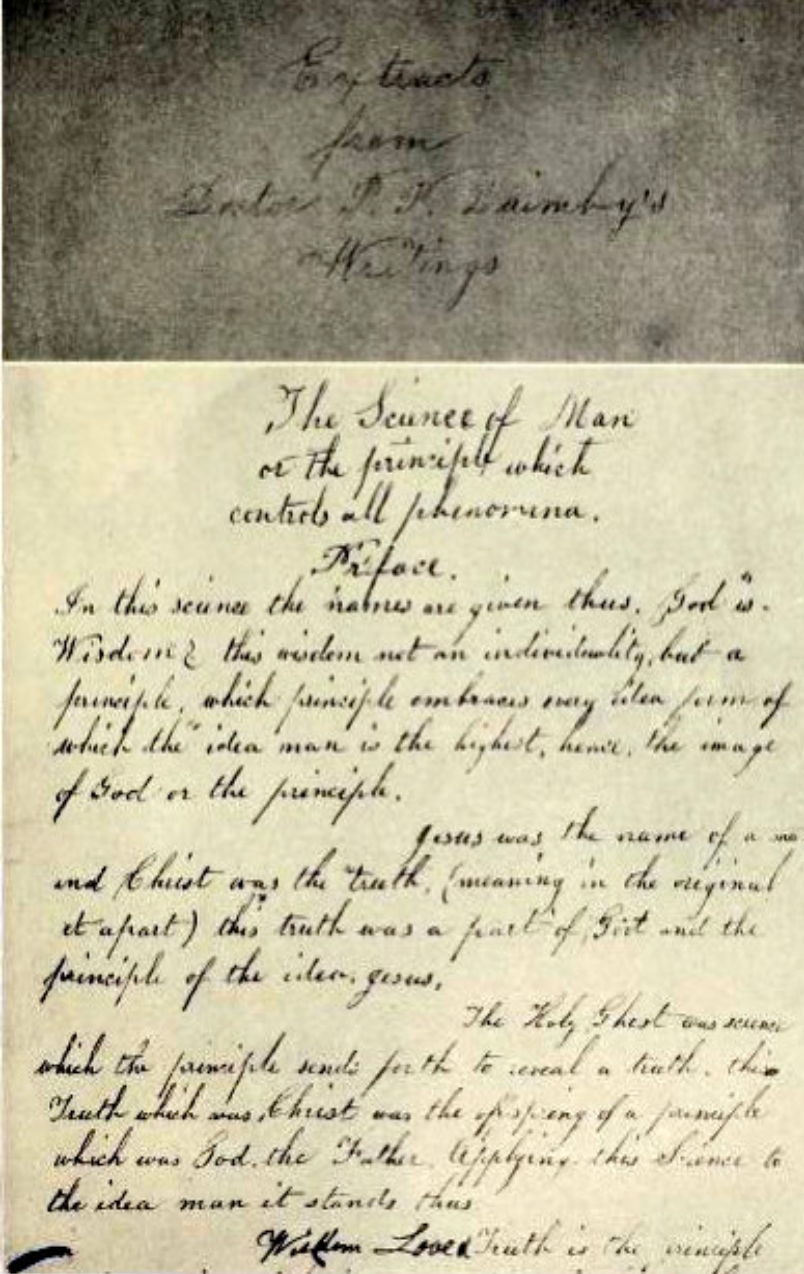 Extracts
from
Doctor P. P. Quimby's
Writings
The Science of Man
or the principle which
controls all phenomena.
Preface.
In this science the names are given thus. God is.
Wisdom & this wisdom not an individuality, but a
principle, which principle embraces every idea form of
which the idea man is the highest, hence, the image
of God or the principle.
Jesus was the name of a
and Christ was the truth, (meaning in the original
et apart) this truth was a part of God and the
principle of the idea. Jesus.
The Holy Ghost was science
which the principle sends forth to reveal a truth. this
Truth which was Christ was the offspring of a principle
which was God. the Father. Applying this Science to
the idea man it stands thus
Wisdom Love & Truth is the principle